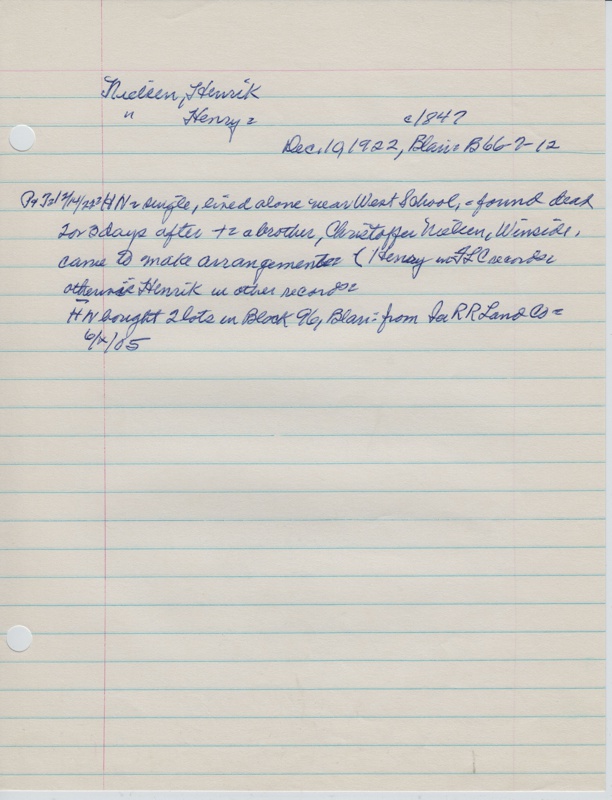 Nielsen, Henrik
" Henry = c1847
Dec. 10, 1922, Blair = B66-7-12
12/14/22 = HN = single, lived alone near West School, = found dead
2 or 3 days after += a brother, Christoffer Nielsen, Winside,
came to make arrangements = (Henry in FLC records =
otherwise Henrik in other records =
HN bought 2 lots in Block 96, Blair = from Ia RR Land Co =
05